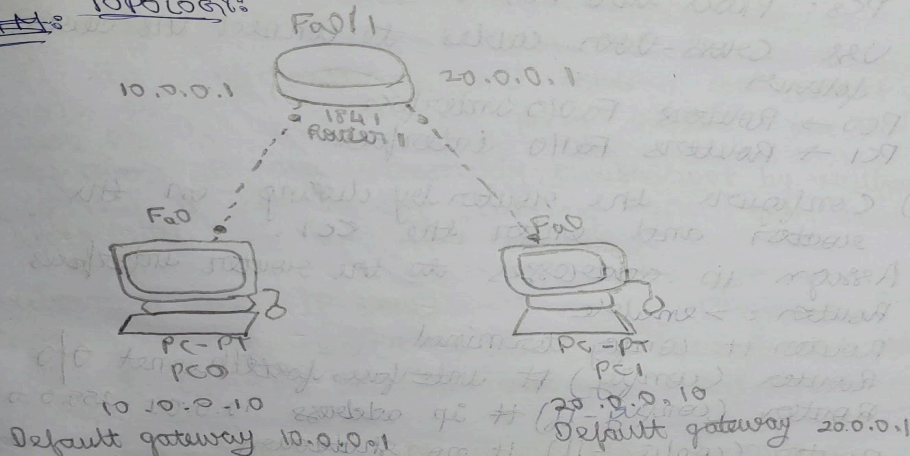 TOPOLOGY:
Fa0/1
10.0.0.1
20.0.0.1
1841
Router 1
Fa0
Fa0
PC-PT
PC0
10.10.0.10
Default gateway 10.0.0.1
PC-PT
PC1
20.0.0.10
Default gateway 20.0.0.1